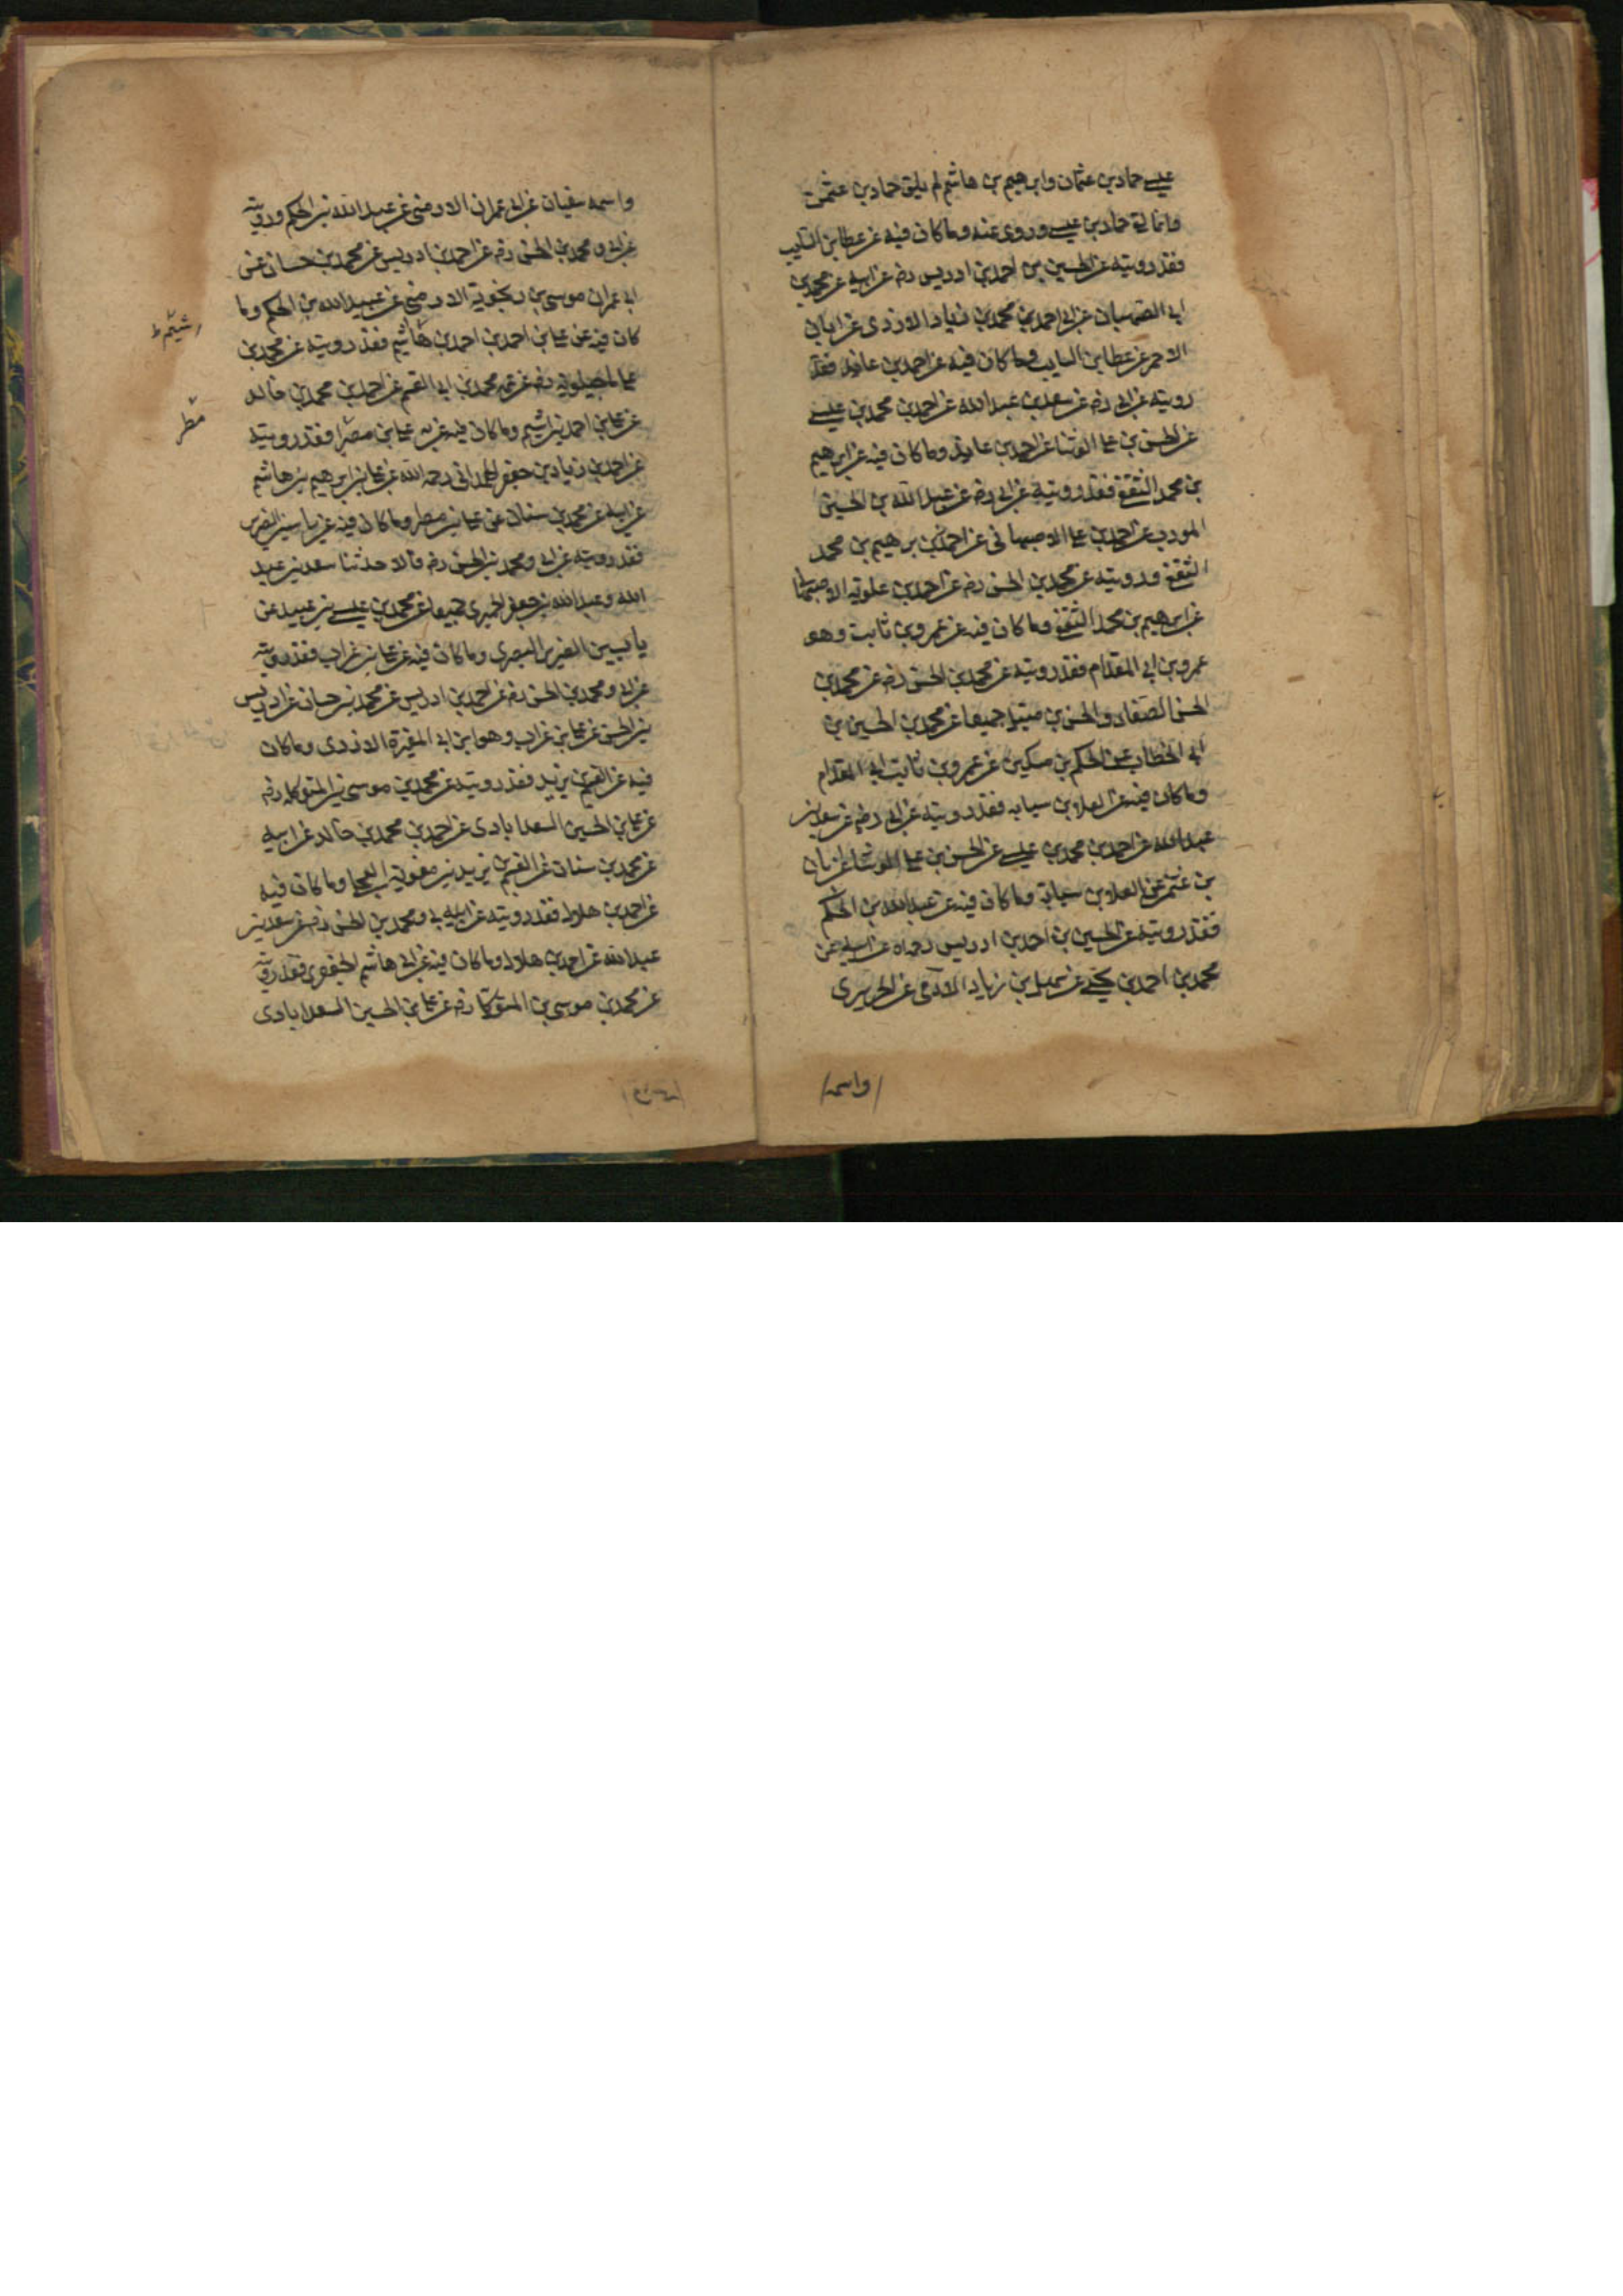 عيسى حماد بن عثمان وابرهيم بن هاشم لم يلق حماد بن عثمن
وانما لقى حماد بن عيسى وروى عنه وما كان فيه عن عطا بن السايب
فقد رويته عن الحسين بن احمد بن ادريس رضه عن ابيه عن محمد بن
ابى الصهبان عن ابى احمد بن محمد بن زياد الازدى عن ابان
الاحمر عن عطا بن السايب وما كان فيه عن احمد بن عايذ فقد
رويته عن ابى رضه عن سعد بن عبد الله عن احمد بن محمد بن عيسى
عن الحسن بن على الوشا عن احمد بن عايذ وما كان فيه عن ابرهيم
بن محمد الثقفى فقد رويته عن ابى رضه عن عبد الله بن الحسين
المودب عن احمد بن على الاصبهانى عن احمد بن برهيم بن محمد
الثقفى ورويته عن محمد بن الحسن رضه عن احمد بن علويه الاصبهانى
عن ابرهيم بن محمد الثقفى وما كان فيه عن عمرو بن ثابت وهو
عمرو بن ابى المقدام فقد رويته عن محمد بن الحسن رضه عن محمد بن
الحسن الصفار والحسن بن متيل جميعا عن محمد بن الحسين بن
ابى الخطاب عن الحكم بن مسكين عن عمرو بن ثابت ابى المقدام
وما كان فيه عن العلا بن سيابه فقد رويته عن ابى رضه عن سعد بن
عبد الله عن احمد بن محمد بن عيسى عن الحسن بن على الوشا عن ابان
بن عثمن عن العلا بن سيابة وما كان فيه عن عبد الله بن الحكم
فقد رويته عن الحسين بن احمد بن ادريس رحمه الله عن ابيه عن
محمد بن احمد بن يحيى عن سهيل بن زياد الادمى عن الجريرى
واسمه
واسمه سفيان عن ابى عمران الارمنى عن عبد الله بن الحكم ورويته
عن ابى ومحمد بن الحسن رضه عن احمد بن ادريس عن محمد بن حسان عن
ابى عمران موسى بن رنجويه الارمنى عن عبيد الله بن الحكم وما
كان فيه عن على بن احمد بن احمد بن هاشيم فقد رويته عن محمد بن
على ماجيلويه رضه عن عمه محمد بن ابى القسم عن احمد بن محمد بن خالد
عن على بن احمد بن اشيم وما كان فيه عن على بن مصر فقد رويته
عن احمد بن زياد بن جعفر الهمدانى رحمه الله عن على بن ابرهيم بن هاشم
عن ابيه عن محمد بن سنان عن على بن مطر وما كان فيه عن ياسين الضرير
فقد رويته عن ابى ومحمد بن الحسن رضه قالا حدثنا سعد بن عبد
الله وعبد الله بن جعفر الحميرى جميعا عن محمد بن عيسى بن عبيد عن
ياسين الضرير البصرى وما كان فيه عن على بن غراب فقد رويته
عن ابى ومحمد بن الحسن رضه عن احمد بن ادريس عن محمد بن حسان عن ادريس
بن الحسن عن على بن غراب وهو ابن ابى المغيرة الازدى وما كان
فيه عن القسم بن بريد فقد رويته عن محمد بن موسى بن المتوكل رضه
عن على بن الحسين السعدابادى عن احمد بن محمد بن خالد عن ابيه
عن محمد بن سنان عن القسم بن بريد بن معوية العجلى وما كان فيه
عن احمد بن هلال فقد رويته عن ابى ومحمد بن الحسن رضه عن سعد بن
عبد الله عن احمد بن هلال وما كان فيه عن ابى هاشم الجعفرى فقد رويته
عن محمد بن موسى بن المتوكل رضه عن على بن الحسين السعدابادى
اشيم ط
مطر